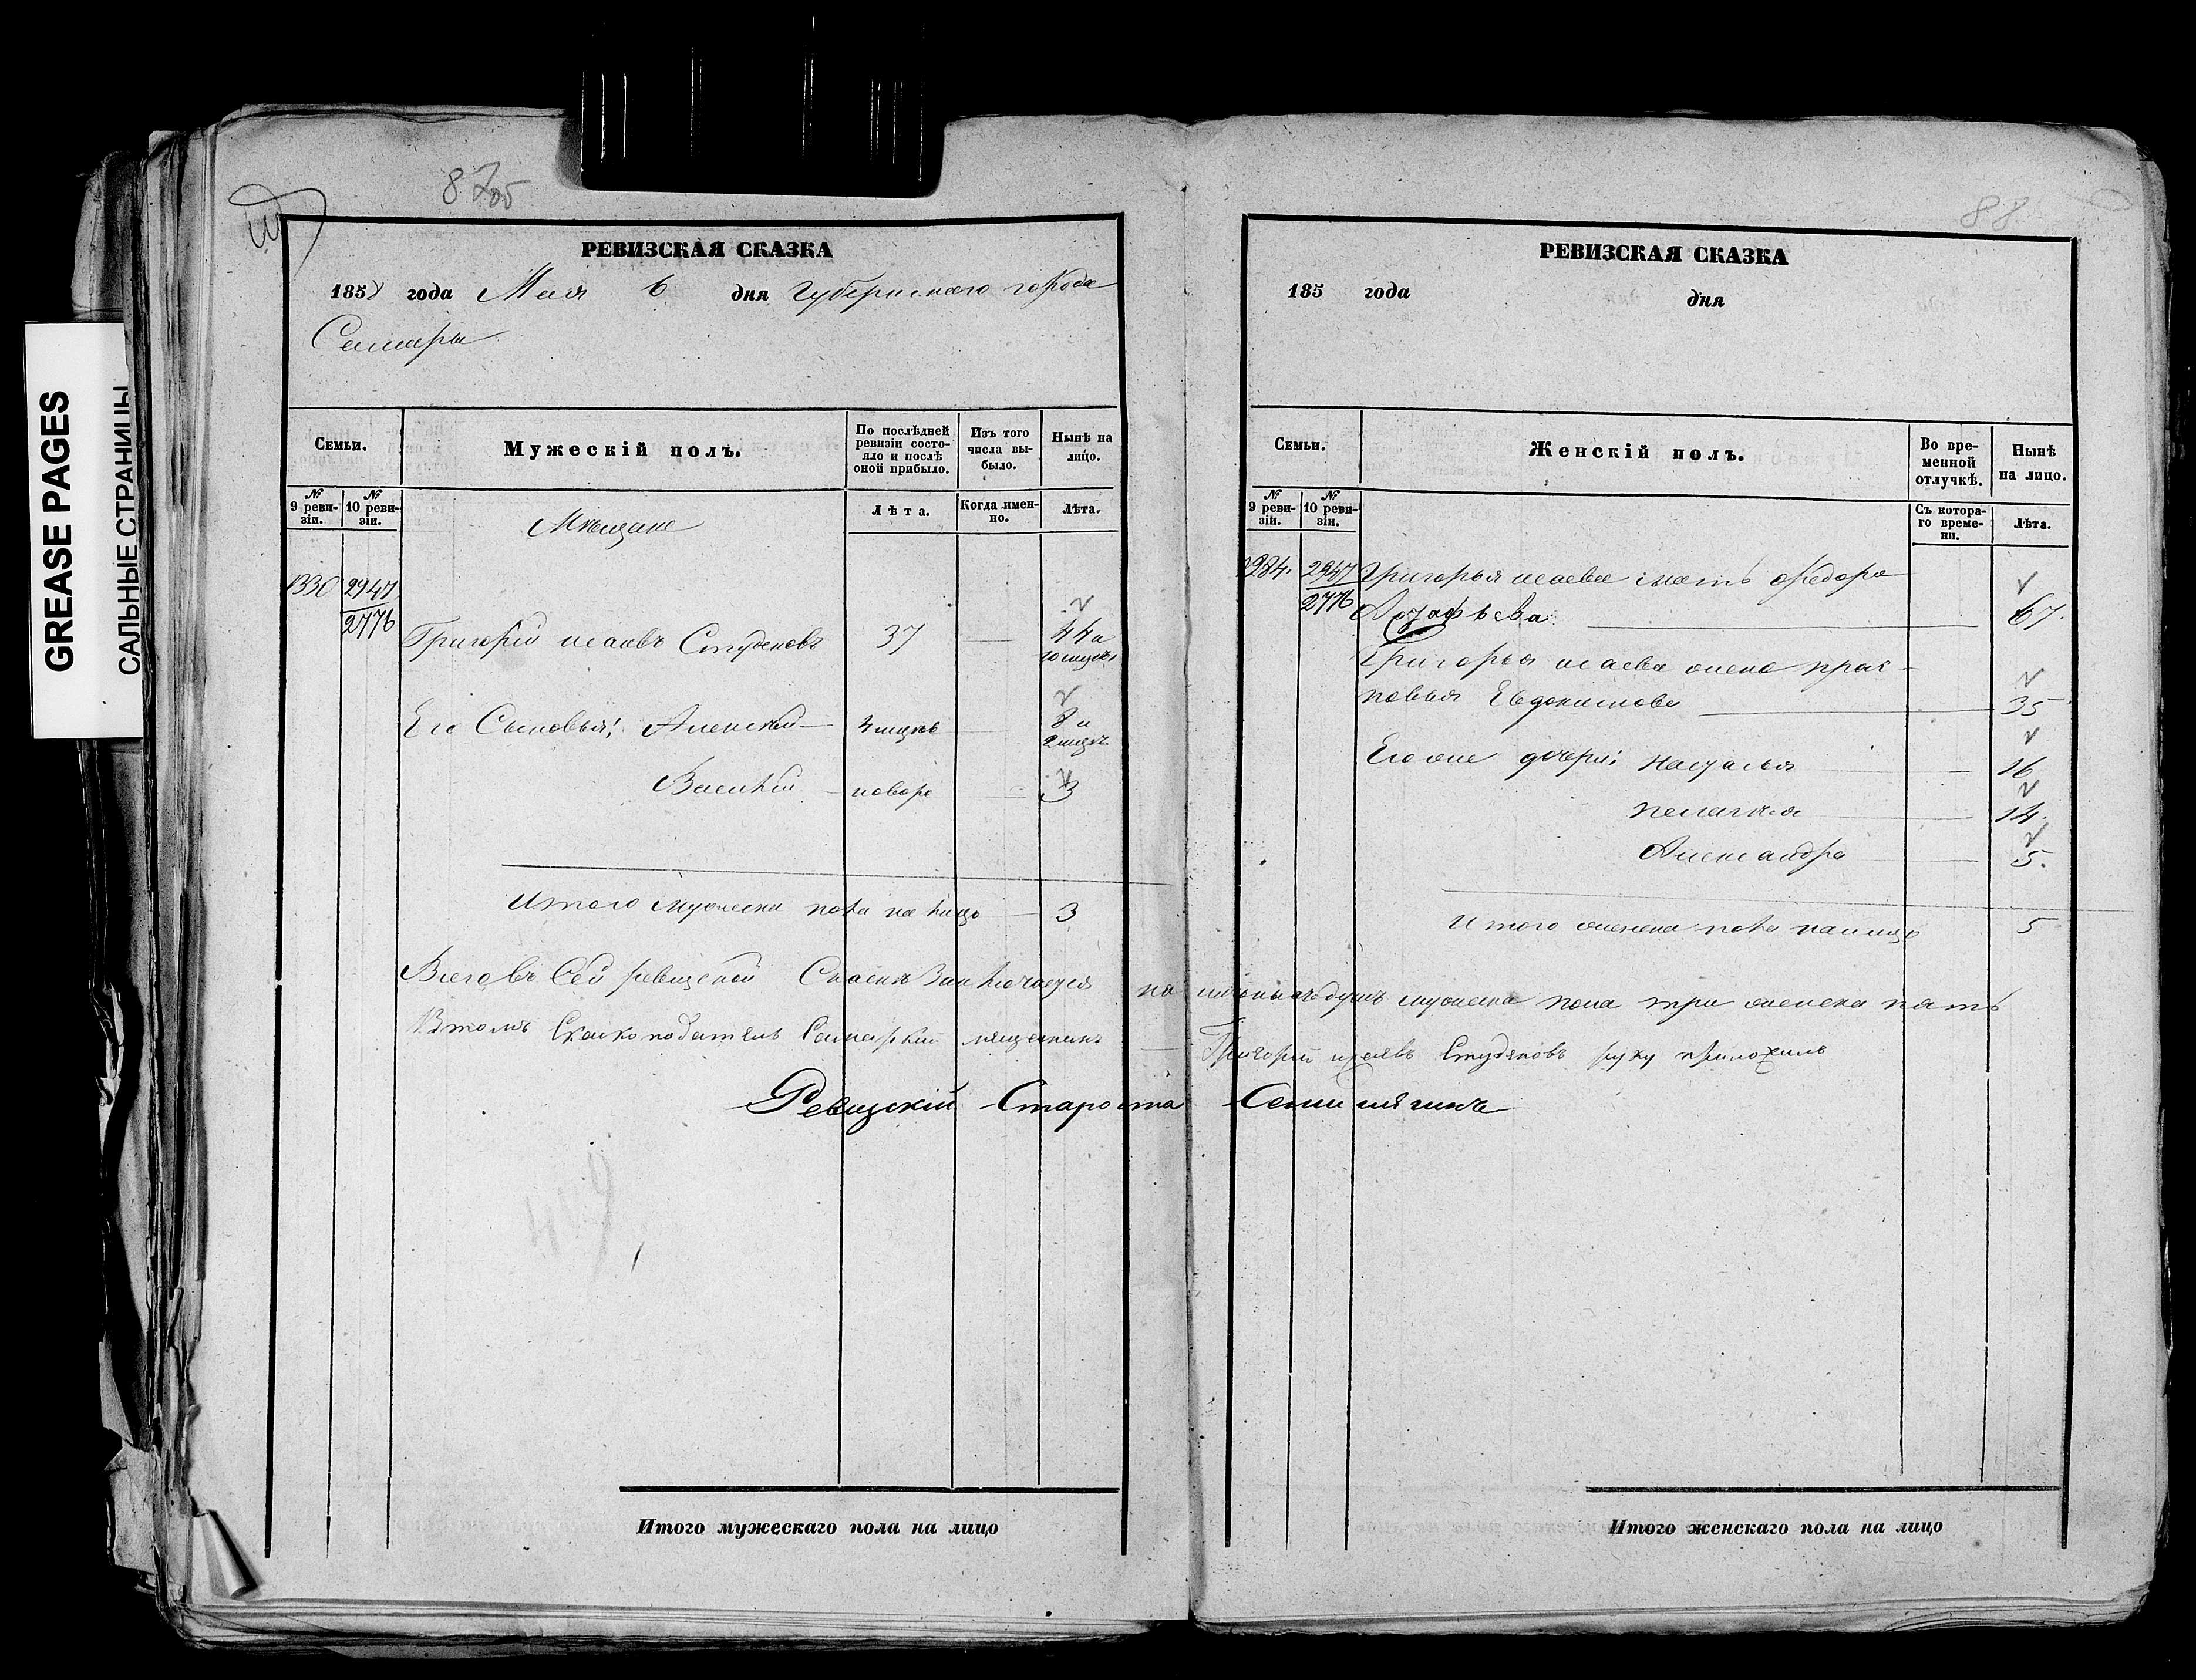 GREASE PAGES
САЛЬНЫЕ СТРАНИЦЫ
РЕВИЗСКАЯ СКАЗКА
1858 года Мая 6 дня Губернскаго города
Самары
Семьи.
Мужескій полъ.
По послѣдней ревизіи состояло и послѣ оной прибыло.
Изъ того числа выбыло.
Нынѣ на лицо.
№ 9 ревизіи.
№ 10 ревизіи.
Мѣщане
Лѣта.
Когда именно.
Лѣта.
1330 2947
2776
Григорій Исаевъ Студеновъ 37 44 и
10 мцовъ
Его Сыновья: Алексѣй 4 мцовъ 8 и
2 мцъ
Василій новорож 3
Итого мужеска пола на лицо 3
Всего въ Сей ревизской Сказкѣ Заключается наличныхъ душъ мужеска пола три женска пять
В томъ Сказкоподатель Самарский мещанинъ Григорий Исаявъ Студяновъ руку приложилъ
Ревизскій Староста
Итого мужескаго пола на лицо
88
РЕВИЗСКАЯ СКАЗКА
185 года дня
Семьи.
Женскій полъ.
Во временной отлучкѣ.
Нынѣ на лицо.
№ 9 ревизіи.
№ 10 ревизіи.
Съ котораго времени.
Лѣта.
2947
2776
Григорья Исаева мать Федора
67
Григорья Исаева жена Прас-
ковья Евдокимова 35
Его же дочери: Наталья 16
Пелагия 14
Александра 5
Итого женска пола на лицо 5
Итого женскаго пола на лицо